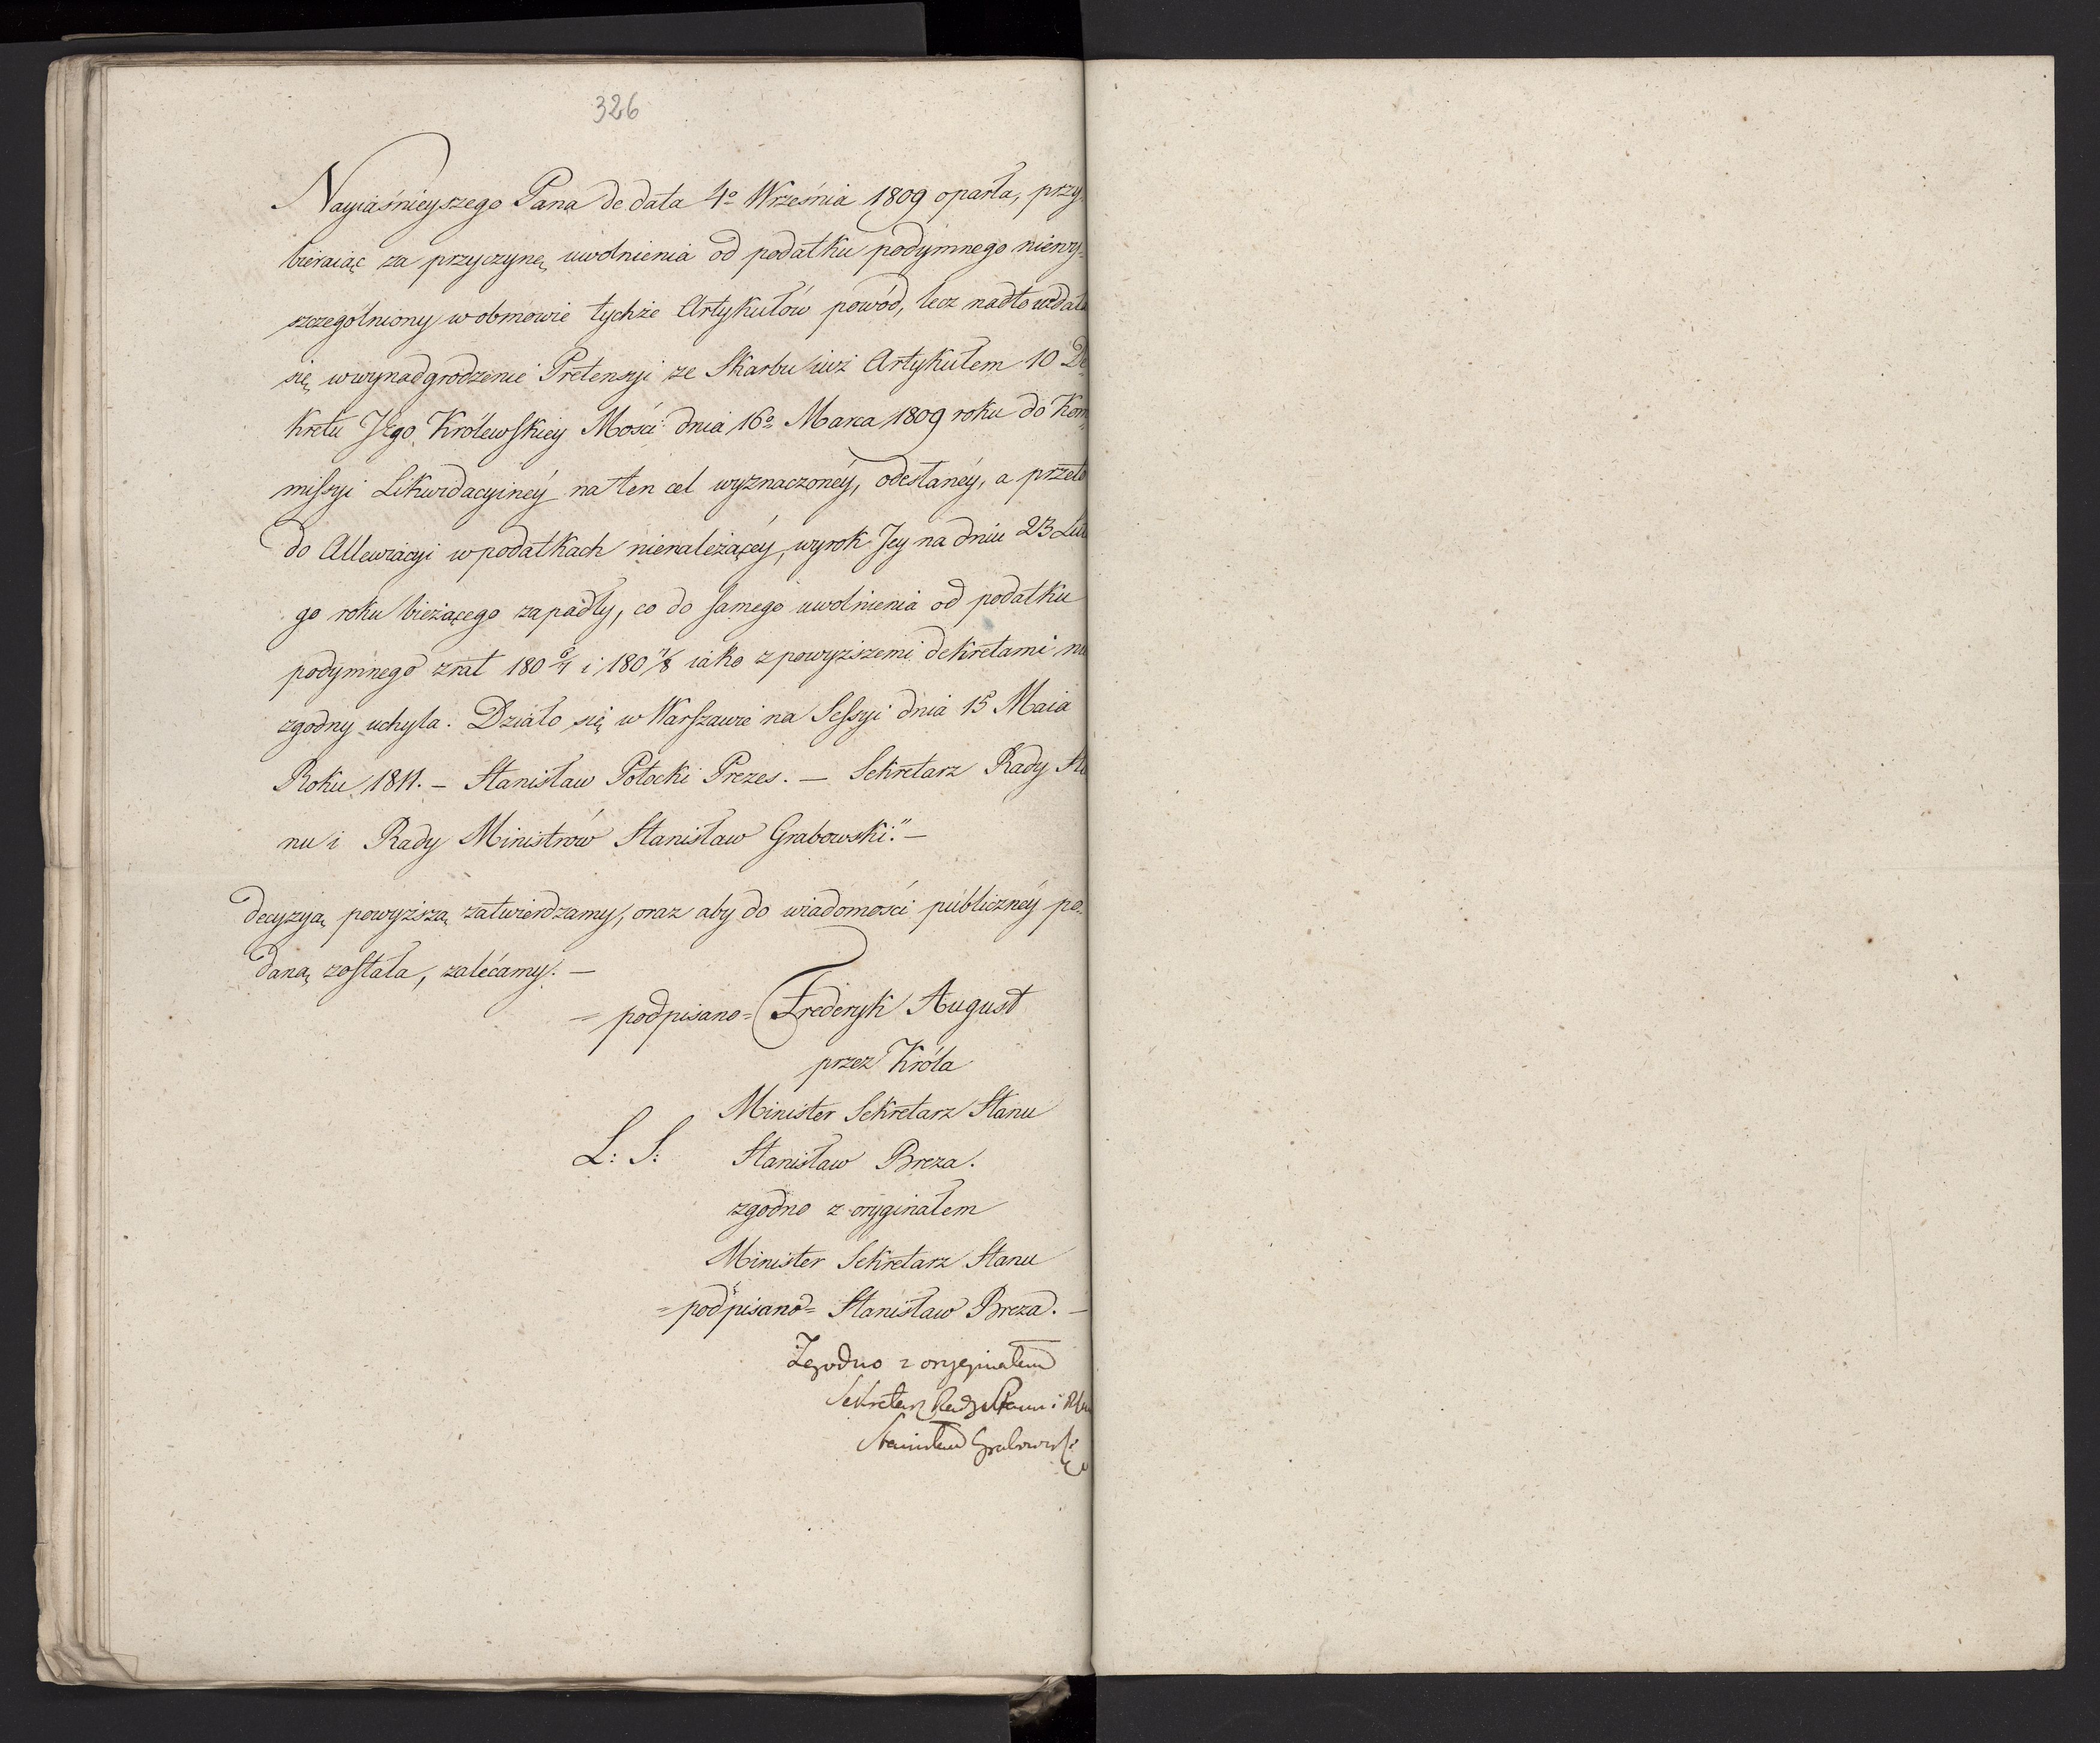 326
Nayiaśnieyszego Pana de data 4º Września 1809 oparła, przy
bieraiąc za przyczynę uwolnienia od podatku podymnego niewy=
szczególniony w obmowie tychże Artykułów powód, lecz nadto wdała
się w wynadgrodzenie Pretensyi ze Skarbu iuż Artykułem 10 De=
kretu Jego Królewskiey Mości dnia 16º Marca 1809 roku do Kom=
missyi Likwidacyinéy na ten cel wyznaczonéy, odesłanéy, a przeto
do Allewiacyi w podatkach nienależącéy, wyrok Jey na dniu 23 Lut
go roku bieżącego zapadły, co do samego uwolnienia od podatku
podymnego z rat 180 6/7 i 180 7/8 iako z powyższemi dekretami nie
zgodny uchyla. Działo się w Warszawie na Sessyi dnia 15 Maia
Roku 1811. – Stanisław Potocki Prezes. – Sekretarz Rady Sta
nu i Rady Ministrów Stanisław Grabowski." –
Decyzyą powyższą zatwierdzamy, oraz aby do wiadomości publicznéy po=
daną została, zalécamy. –
= podpisano = Frederyk August
przez Króla
Minister Sekretarz Stanu
L: S: Stanisław Breza.
zgodno z oryginałem
Minister Sekretarz Stanu
= podpisano = Stanisław Breza. –
Zgodno z oryginałem
Sekretarz Rady Stanu i
Stanisław Grabowski